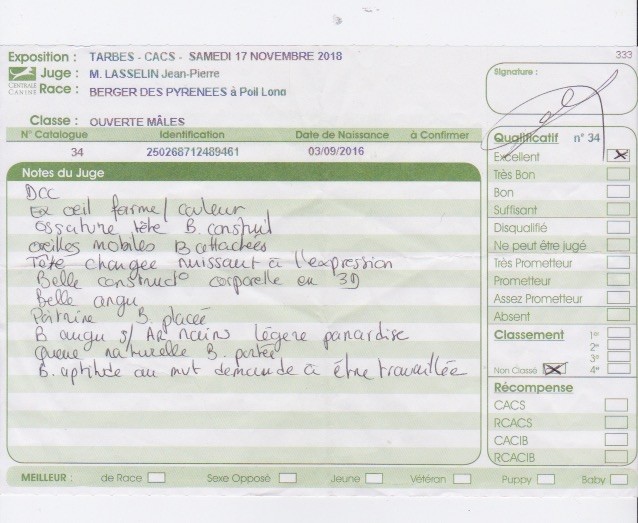 Exposition : TARBES - CACS - SAMEDI 17 NOVEMBRE 2018
333
Juge : M. LASSELIN Jean-Pierre
CENTRALE CANINE
Race : BERGER DES PYRENEES à Poil Long
Signature :
Classe : OUVERTE MÂLES
N° Catalogue Identification Date de Naissance à Confirmer
34 250268712489461 03/09/2016
Notes du Juge
DCC
Ex oeil forme/couleur
Ossature tête B. construit
oreilles mobiles B attachées
Tête chargée nuisant à l'expression
Belle construct° corporelle en 3D
Belle angu
Poitrine B. placée
B angu s/ AR mains légère panardise
Queue naturelle B. portée
B. aptitude au mvt demande à être travaillée
Qualificatif n° 34
Excellent
Très Bon
Bon
Suffisant
Disqualifié
Ne peut être jugé
Très Prometteur
Prometteur
Assez Prometteur
Absent
Classement 1°
2°
3°
Non Classé 4°
Récompense
CACS
RCACS
CACIB
RCACIB
MEILLEUR : de Race Sexe Opposé Jeune Vétéran Puppy Baby